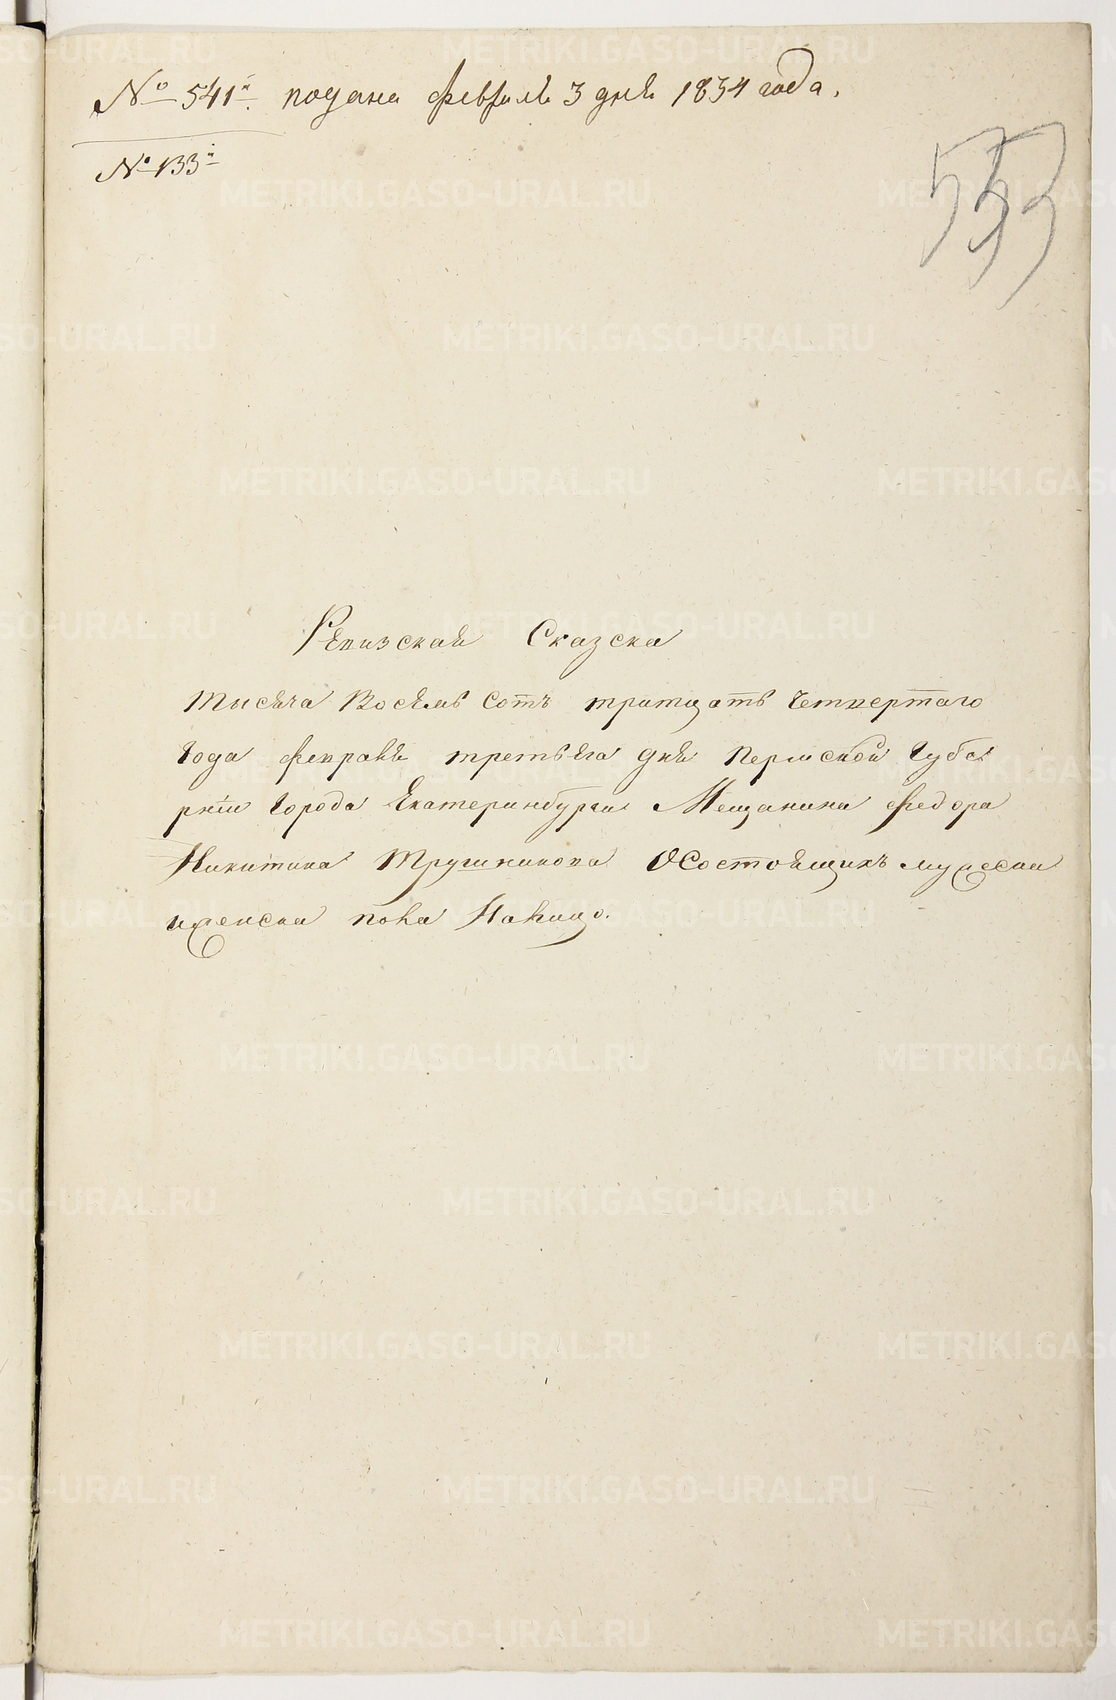 № 541й подана февраля 3 дня 1834 года.
№ 133й
533
Ревизская Сказска
тысяча восемь сотъ тритцать четвертаго
года февраля третьяго дня Пермской Губе
рніи города Екатеринбурга Мещанина Федора
Никитина Трушникова О Состоящихъ мужеска
иженска пола Налицо.
METRIKI.GASO-URAL.RU